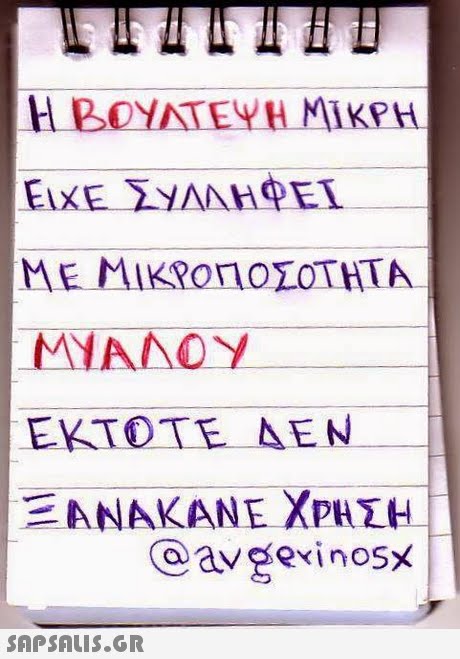 Η ΒΟΥΛΤΕΨΗ ΜΙΚΡΗ
ΕΙΧΕ ΣΥΛΛΗΦΕΙ
ΜΕ ΜΙΚΡΟΠΟΣΟΤΗΤΑ
ΜΥΑΛΟΥ
ΕΚΤΟΤΕ ΔΕΝ
ΞΑΝΑΚΑΝΕ ΧΡΗΣΗ
@avgerinosx
SAPSALIS.GR